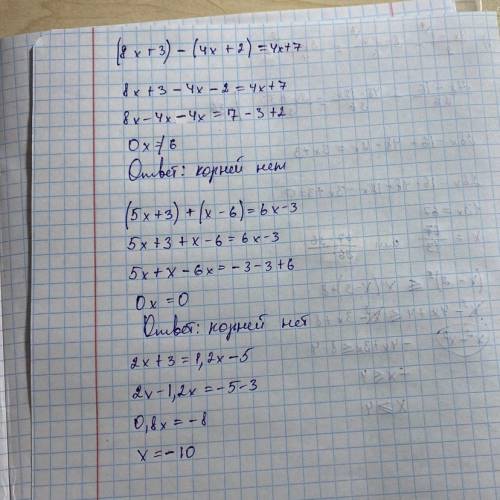 (8x+3)-(4x+2)=4x+7
8x+3-4x-2=4x+7
8x-4x-4x=7-3+2
0x≠6
Ответ: корней нет
(5x+3)+(x-6)=6x-3
5x+3+x-6=6x-3
5x+x-6x=-3-3+6
0x=0
Ответ: корней нет
2x+3=1,2x-5
2x-1,2x=-5-3
0,8x=-8
x=-10